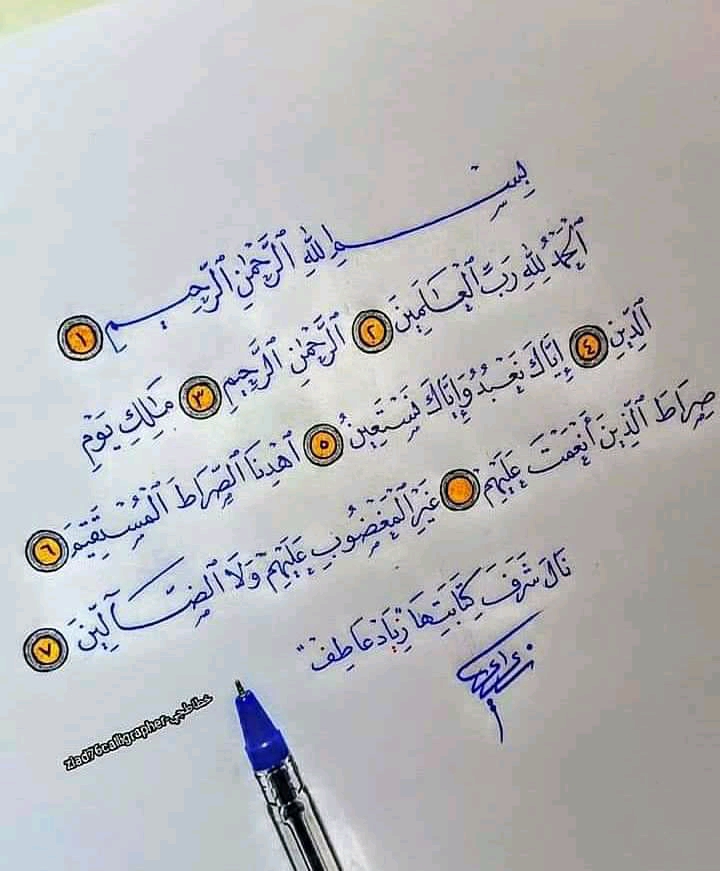 بِسْمِ اللَّهِ الرَّحْمَٰنِ الرَّحِيمِ ١
الْحَمْدُ لِلَّهِ رَبِّ الْعَٰلَمِينَ ٢ الرَّحْمَٰنِ الرَّحِيمِ ٣ مَٰلِكِ يَوْمِ
الدِّينِ ٤ إِيَّاكَ نَعْبُدُ وَإِيَّاكَ نَسْتَعِينُ ٥ اهْدِنَا الصِّرَاطَ الْمُسْتَقِيمَ ٦
صِرَاطَ الَّذِينَ أَنْعَمْتَ عَلَيْهِمْ غَيْرِ الْمَغْضُوبِ عَلَيْهِمْ وَلَا الضَّآلِّينَ ٧
نَالَ شَرَفَ كِتَابَتِهَا زِيَاد عَاطِف
ziad76calligrapher-خطاطجي